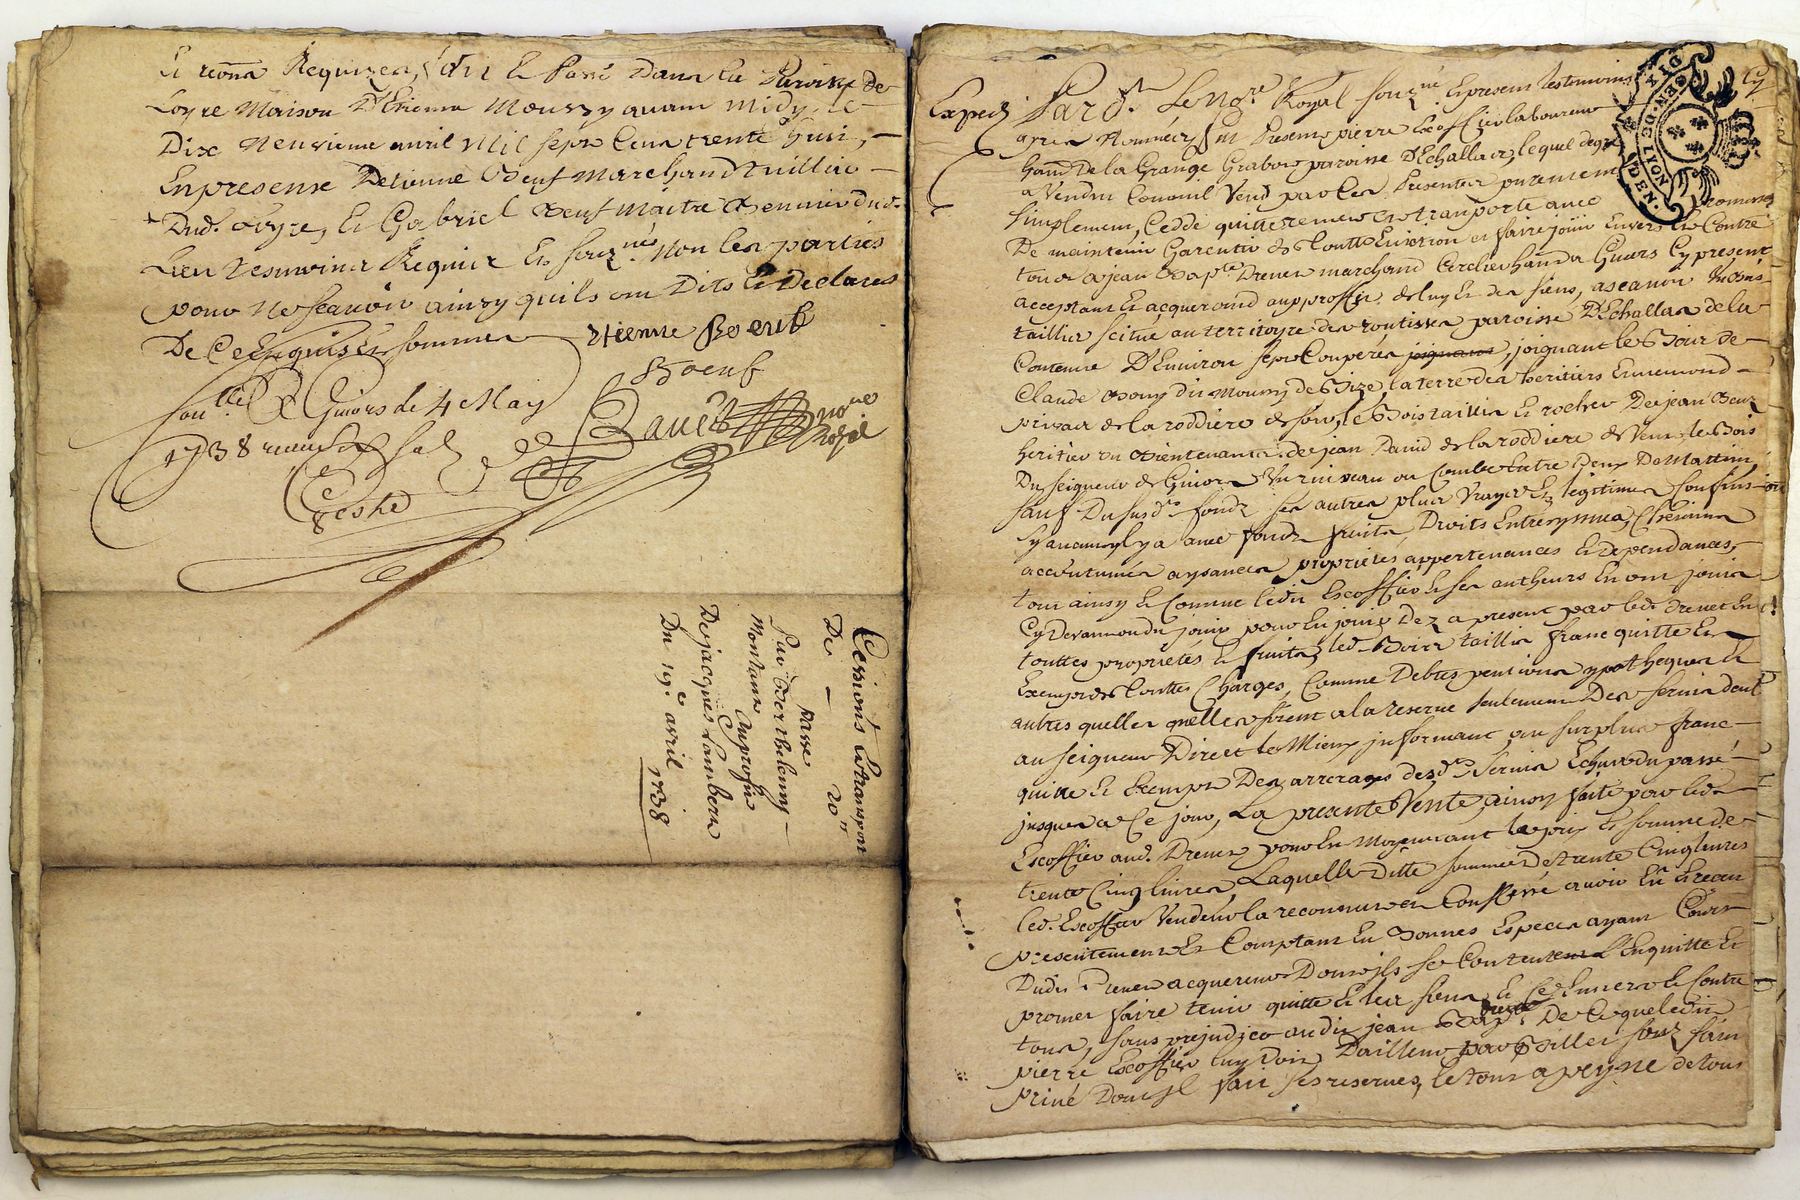 Et renon Requizen, fait et Passé Dans la Paroisse de
Loyre Maison D'Etienne Moussy avant midy le
Dix Neuvieme avril Mil sept Cens trente huit,
En presense D'etienne Boeuf Marchand
Dud. Loyre, Et Gabriel Boeuf Maitre
Lieu tesmoins Requis Et souz.nés Non les parties
pour ne scavoir ainsy quils ont Dits Et Declarés
De Ce Enquis Et sommés
Etienne Boeuf
Boeuf
Contllé a Givors le 4e May
1738 receu
Bavet No.re
Royal
Cessions Et transport
De — 20 lt
Passé
Par Berthelemy
Montant Au profit
De jacques Lambert
Du 19.e avril 1738
Exped.
Pard.t Le No.re Royal souz.né Et present les temoins
apres Nommés fut Present pierre Escoffier laboureur
hant De la Grange Grabot paroisse D'Echallas, lequel de gré
a Vendu Comme il Vend par Ces Presentes purement
simplement, Cedde quitte remet Et transporte avec promesse
De maintenir Garentir de toutte Eviction et faire jouir Envers Et Contre
tous a jean Bap.te Drevet marchand Cerclier hant a Givors Cy present
acceptant Et acquerant au proffit de luy Et des siens, ascavoir Un bois
taillis scitué au territoyre des routisses paroisse D'Echallas de la
Contenue D'Environ sept Couperés joignant, joignant le Bois de
Claude Bony du Mouny de Bize, la terre des heritiers Ennemond
privat de la roddiere de soir, le Bois taillis Et rocher De jean
heritier ou Bientenant de jean David de la roddiere de Vent, le Bois
Du seigneur de Givors Un ruisseau ou Combe Entre Deux De Mattin
sauf Du susd. fondz ses autres plus Vrays Et legitimes Confins
sy aucuns y a avec fondz fruits, Droits Entrées issues, Chemins
accoutumés aysances proprietés appertenances Et Dependances,
tout ainsy Et Comme ledit Escoffier Et ses autheurs En ont joui
Cy Devant pour En jouir Dez a present par led. Drevet En
touttes proprietés Et fruits, led. Bois taillis franc quitte Et
Exempt de touttes Charges, Comme Debtes pentions ypotheques Et
autres quelles quelles soient a la reserve seulement Des servis deut
au seigneur Direct le Mieux jnformant au surplus franc
quitte Et Exempt Des arrerages desd. servis Echus du passé
jusques a Ce jour, La presente Vente ainsy faite par led.
Escoffier aud. Drevet pour Et Moyennant le prix Et somme de
trente Cinq livres, Laquelle Ditte somme De trente Cinq livres
led. Escoffier Vendeur la reconnu et Confessé avoir Eu Et receu
presentement Et Comptant En Bonnes Especes ayant Cours
Dudit Drevet acquereur Dont il se Contente L'Enquitte Et
promet faire tenir quitte Et les siens, Et Ce Envers Et Contre
tous, sans prejudice audit jean Bap.te Drevet De Ce que ledit
pierre Escoffier luy Doit D'ailleurs par Billet souz sain
privé Dont Jl fait ses reserves, le tout a peyne de tous
DEN. GEN. DE LION
DIX